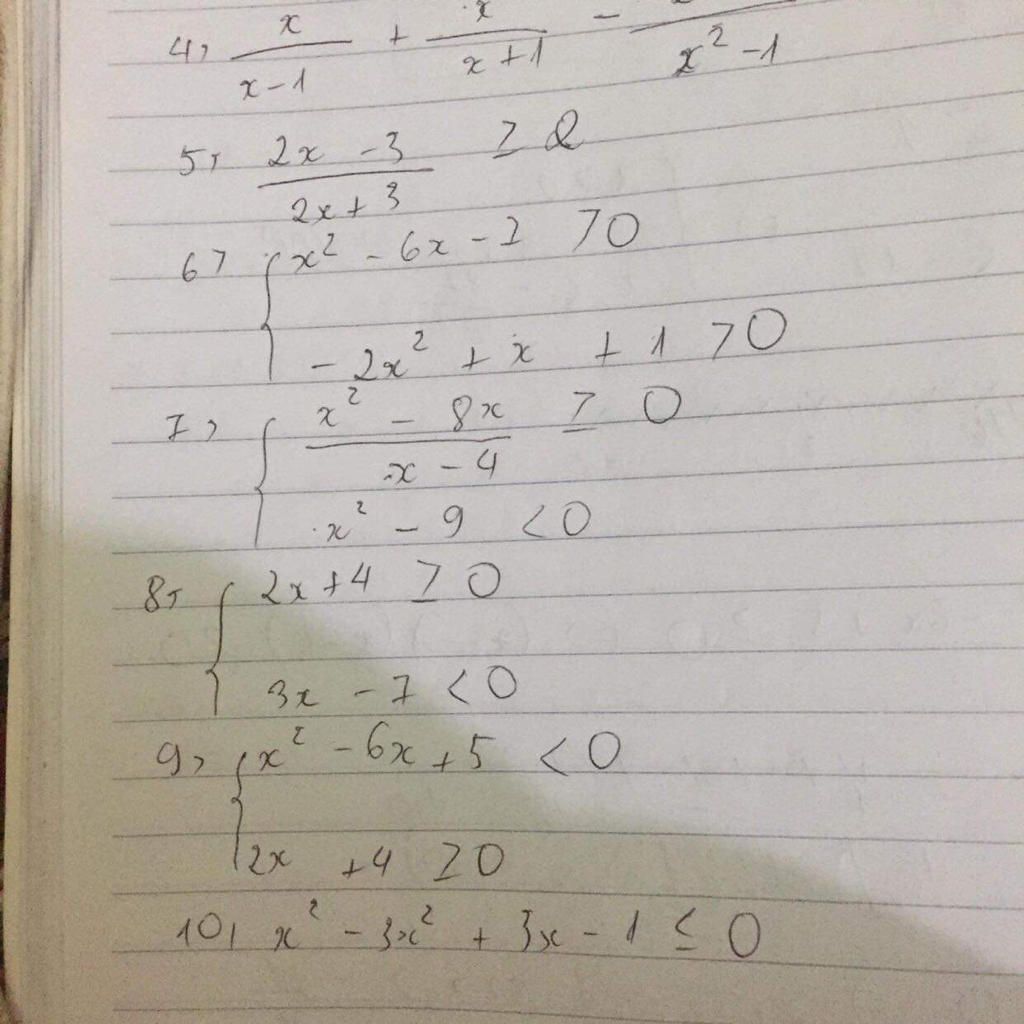 4, x/(x-1) + x/(x+1) - /(x²-1)
5, (2x-3)/(2x+3) ≥ 2
6, { x² - 6x - 7 > 0
-2x² + x + 1 > 0
7, { (x² - 8x)/(x-4) ≥ 0
x² - 9 < 0
8, { 2x+4 ≥ 0
3x - 7 < 0
9, { x² - 6x + 5 < 0
2x + 4 ≥ 0
10, x² - 3x² + 3x - 1 ≤ 0